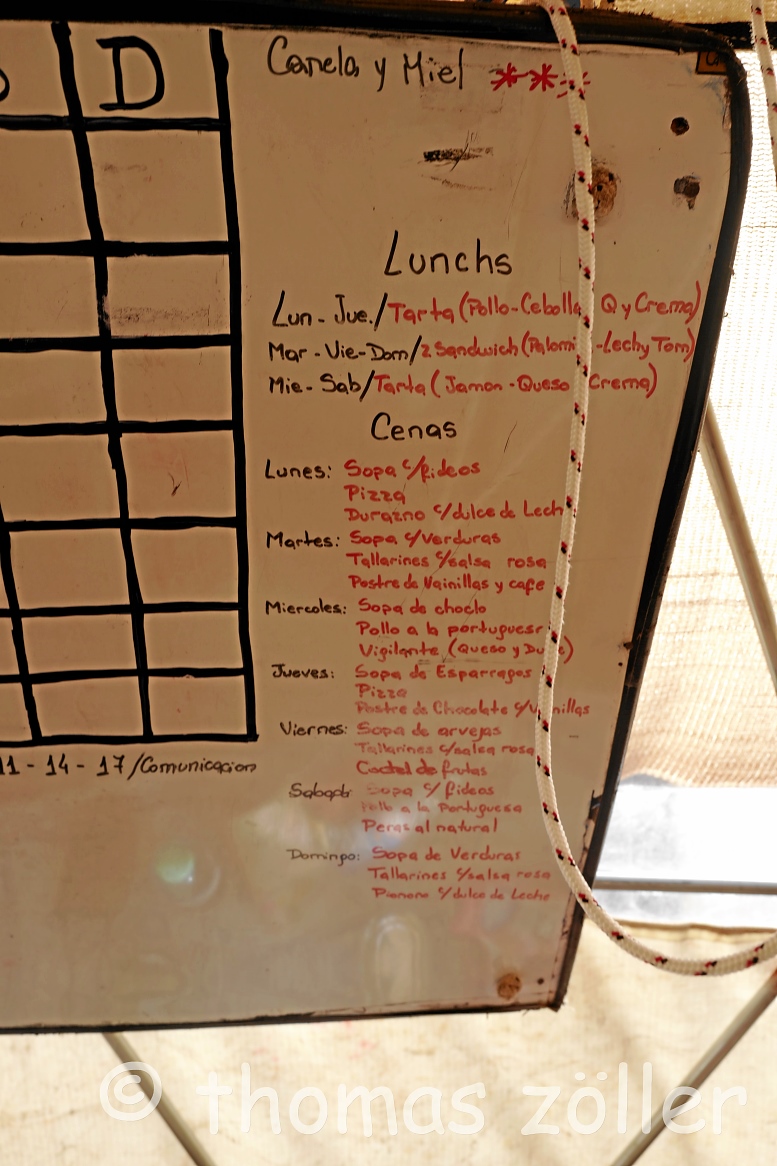 D
Canela y Miel ***
Lunchs
Lun - Jue. / Tarta (Pollo - Cebolla Q y Crema)
Mar - Vie - Dom / 2 Sandwich (Palomi - Lech y Tom)
Mie - Sab / Tarta (Jamon - Queso Crema)
Cenas
Lunes: Sopa c/fideos
Pizza
Durazno c/dulce de Lech
Martes: Sopa c/Verduras
Tallarines c/salsa rosa
Postre de Vainillas y cafe
Miercoles: Sopa de choclo
Pollo a la portugues
Vigilante (Queso y Du e)
Jueves: Sopa de Esparragos
Pizza
Postre de Chocolate c/Vainillas
Viernes: Sopa de arvejas
Tallarines c/salsa rosa
Coctel de frutas
11 - 14 - 17 / Comunicacion
Sabado: Sopa c/ fideos
Pollo a la Portuguesa
Peras al natural
Domingo: Sopa de Verduras
Tallarines c/salsa rosa
Pionono c/dulce de Leche
© thomas zöller